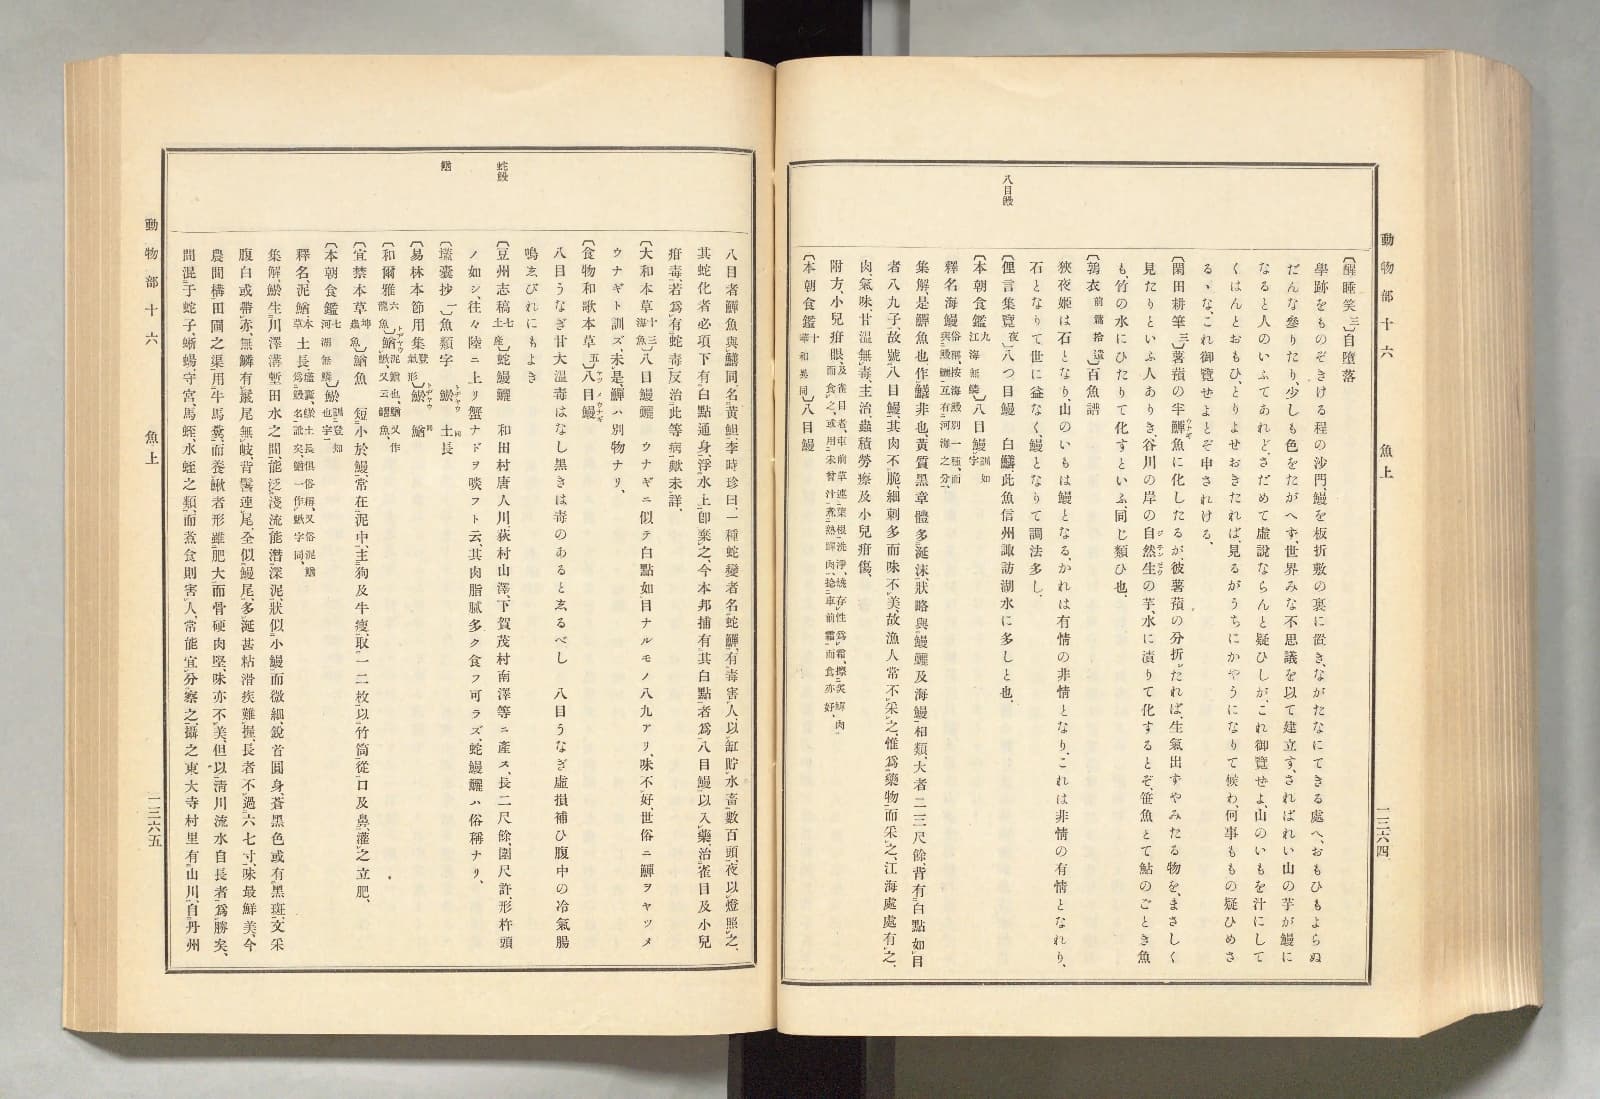 動物部十六　魚上
一三六四
八目鰻
〔醒睡笑 三〕自墮落
學跡をものぞきける程の沙門、鰻を板折敷の裏に置き、ながたなにてきる處へ、おもひもよらぬ
だんな參りたり、少しも色をたがへず、世界みな不思議を以て建立す、さればれい山の芋が鰻に
なると人のいふてあれど、さだめて虚説ならんと疑ひしが、これ御覽せよ、山のいもを汁にして
くはんとおもひ、とりよせおきたれば、見るがうちにかやうになりて候わ、何事ももの疑ひめさ
るヽな、これ御覽せよとぞ申されける、
〔閑田耕筆 三〕薯蕷の半鱓魚に化したるが、彼薯蕷の分折したれば、生氣出すやみたる物を、まさしく
見たりといふ人ありき、谷川の岸の自然生の芋、水に漬りて化するとぞ、笹魚とて鮎のごとき魚
も、竹の水にひたりて化すといふ、同じ類ひ也、
〔鶉衣 前篇拾遺〕百魚譜
狹夜姬は石となり、山のいもは鰻となる、かれは有情の非情となり、これは非情の有情となれり、
石となりて世に益なく、鰻となりて調法多し、
〔俚言集覽 夜〕八つ目鰻　白鱔、此魚信州諏訪湖水に多しと也、
〔本朝食鑑 九 江海無鱗〕八目鰻 訓如字
釋名海鰻
集解、是鱓魚也、作鱔非也、黃質黑章、體多涎沫、狀略與鰻鱺及海鰻相類、大者二三尺餘、背有白點如目
者八九子、故號八目鰻、其肉不脆、細刺多而味不美、故漁人常不采之、惟爲藥物而采之、江海處處有之、
肉、氣味、甘溫無毒、主治、蟲積勞瘵及小兒疳傷、
附方、小兒疳眼及雀目
〔本朝食鑑 十 華和異同〕八目鰻
動物部十六　魚上
一三六五
蛇鰻
鰌
八目者鱓魚與鱔同名、黃䱇、李時珍曰、一種蛇變者名蛇鱓、有毒害人、以缸貯水、畜數百頭、夜以燈照之、
其蛇化者必項下有白點、通身浮水上、卽棄之、今本邦捕有其白點者、爲八目鰻、以入藥、治雀目及小兒
疳毒、若爲有蛇毒、反治此等病歟、未詳、
〔大和本草 十三 海魚〕八目鰻鱺　ウナギニ似テ白點如目ナルモノ八九アリ、味不好、世俗ニ鱓ヲヤツメ
ウナギト訓ズ、未是、鱓ハ別物ナリ、
〔食物和歌本草 五〕八目鰻
八目うなぎ甘大溫毒はなし黑きは毒のあるとゑるべし　八目うなぎ虛損補ひ腹中の冷氣腸
鳴ゑびれにもよき
〔豆州志稿 七 土產〕蛇鰻鱺　和田村唐人川、荻村山澤、下賀茂村南澤等ニ產ス、長二尺餘、圍尺許、形杵頭
ノ如シ、往々陸ニ上リ蟹ナドヲ啖フト云、其肉脂膩多ク食フ可ラズ、蛇鰻鱺ハ俗稱ナリ、
〔壒嚢抄 一〕魚類字　鯲　土長
〔易林本節用集 登 氣形〕鯲　鰌
〔和爾雅 六 龍魚〕鰌
〔宜禁本草 坤 蟲魚〕鰌魚　短小於鰻、常在泥中、主狗及牛瘦、取一二枚、以竹筒從口及鼻、灌之立肥、
〔本朝食鑑 七 河湖無鱗〕鯲
釋名、泥鰌、土長
集解、鯲生川澤溝塹田水之間、能泛淺流、能潛深泥、狀似小鰻而微細、銳首圓身、蒼黑色或有黑斑、文采
腹白或帶赤、無鱗有鬚、尾無岐、背鬐連尾、全似鰻尾、多涎甚粘滑疾難握、長者不過六七寸、味最鮮美、今
農間構田圃之渠、用牛馬糞、而養鰍者形雖肥大、而骨硬肉堅、味亦不美、但以淸川流水自長者爲勝矣、
間混于蛇子、蜥蜴、守宮、馬蛭、水蛭之類、而煮食則害人、常能宜分察之、攝之東大寺村里有山川、自丹州